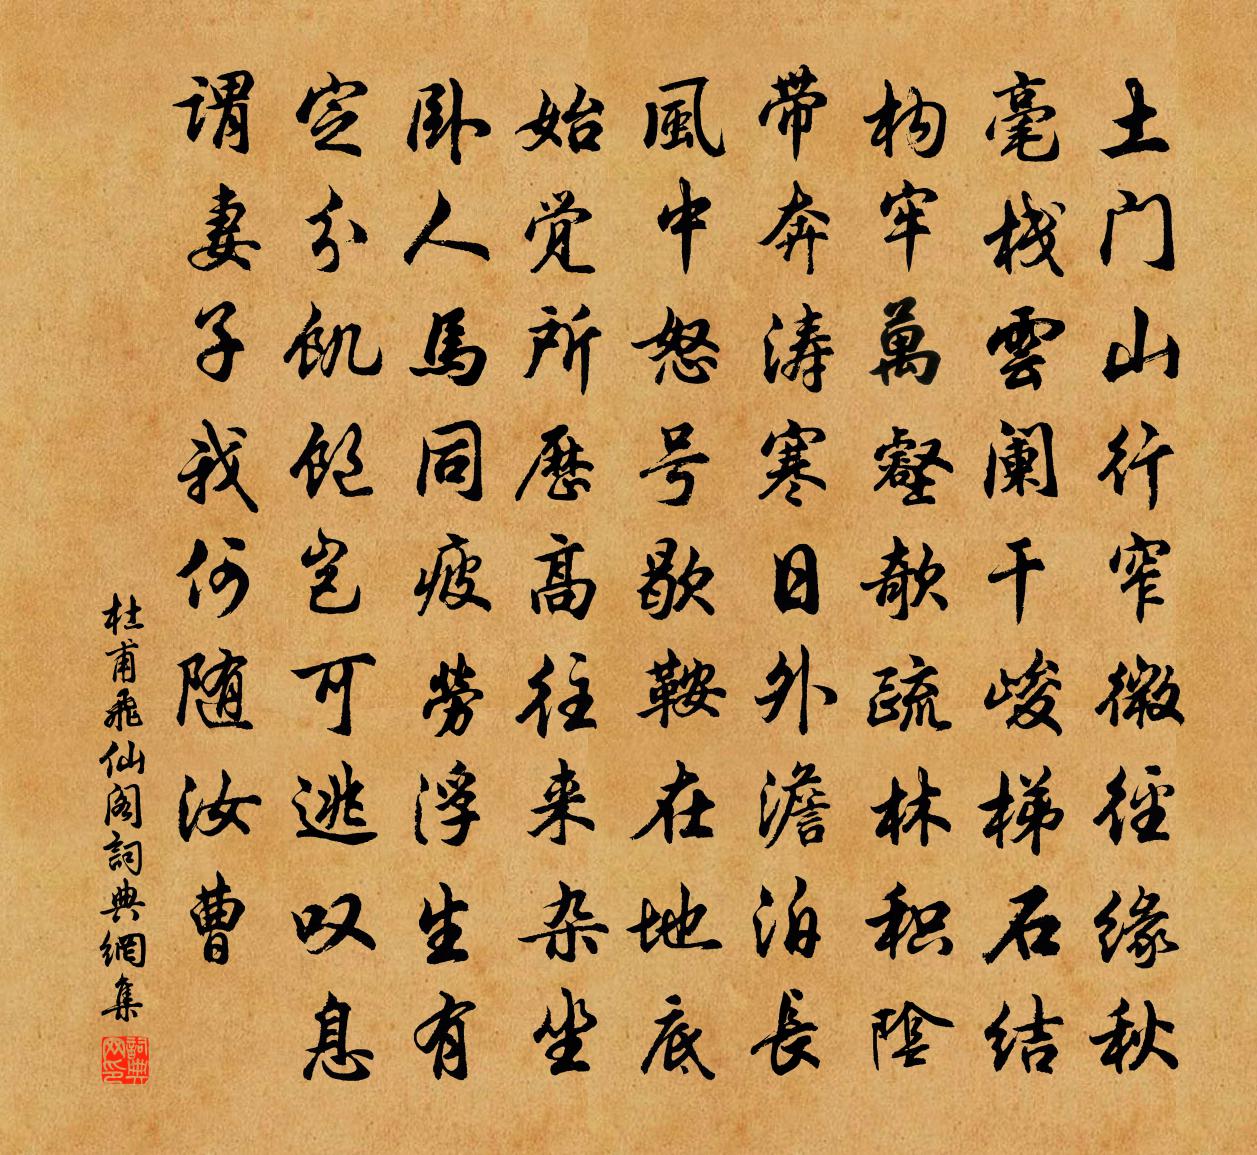 土门山行窄微徑缘秋
毫栈雲阑干峻梯石结
构牢萬壑欹疏林积陰
带奔涛寒日外澹泊長
風中怒号歇鞍在地底
始觉所歷高往来杂坐
卧人馬同疲劳浮生有
定分飢飽岂可逃叹息
谓妻子我何随汝曹
杜甫飛仙阁詞典網集
詞典网印